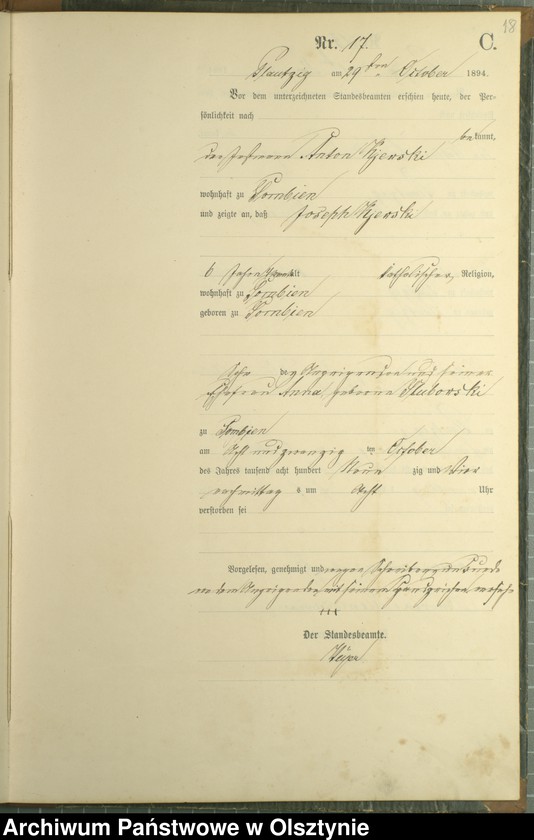 18
Nr. 17. C.
Plautzig am 29ten October 1894.
Vor dem unterzeichneten Standesbeamten erschien heute, der Per-
sönlichkeit nach
bekannt,
der Anton Kijewski
wohnhaft zu Dombien
und zeigte an, daß Joseph Kijewski
6 Jahre alt katholischer Religion,
wohnhaft zu Dombien
geboren zu Dombien
Sohn des Anzeigenden und seiner
Ehefrau Anna geborene
zu Dombien
am Acht und zwanzig ten October
des Jahres tausend acht hundert Neun zig und Vier
nachmittag s um Acht Uhr
verstorben sei
Vorgelesen, genehmigt und wegen Schreibensunkunde
von dem Anzeigenden mit seinem Handzeichen versehen
+++
Der Standesbeamte.
Archiwum Państwowe w Olsztynie